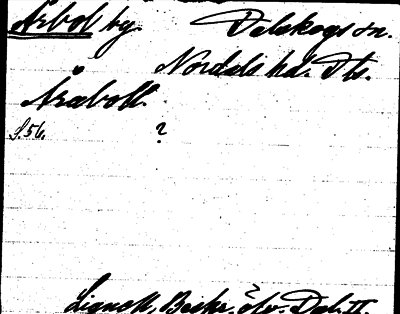 Årbol by. Dalskogs sn.
Nordals hd. Dls.
Åraboll.
S.56. ?
Lignell, Beskr. öfv. Dal. II.